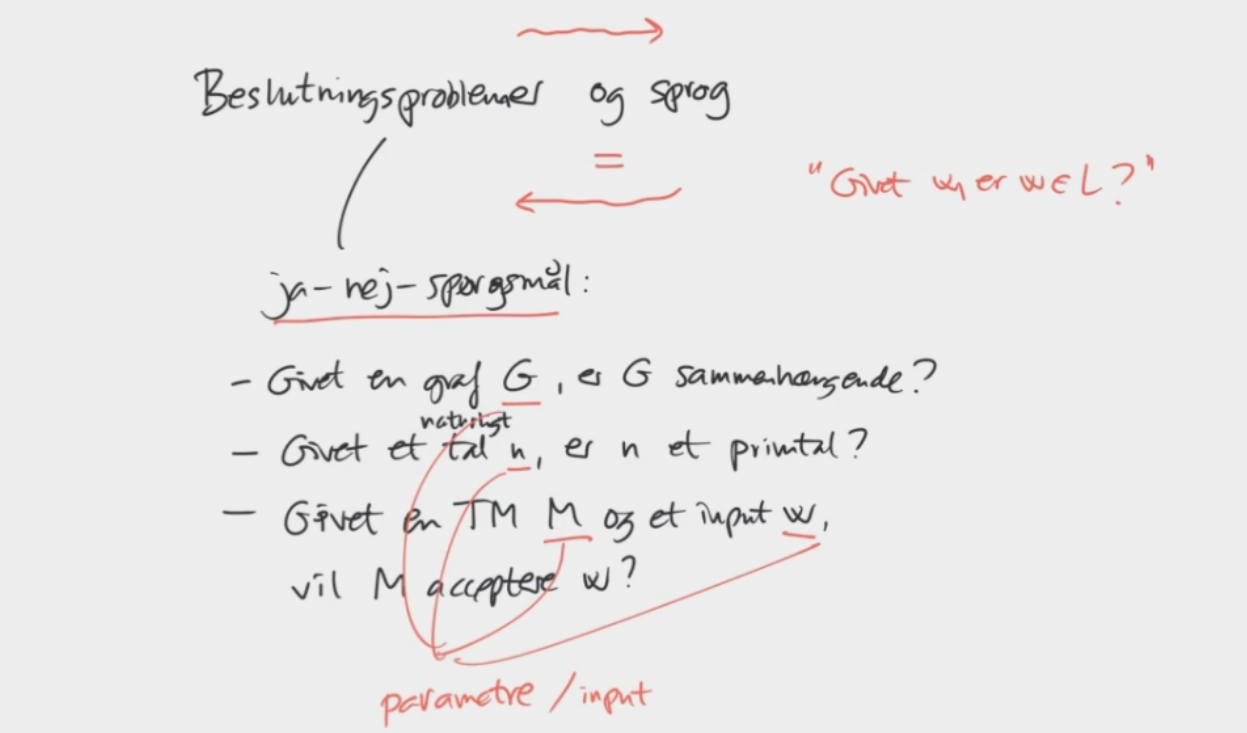 Beslutningsproblemer og sprog
=
"Givet w, er w ∈ L?"
ja-nej-spørgsmål:
- Givet en graf G, er G sammenhængende?
naturligt
- Givet et tal n, er n et primtal?
- Givet en TM M og et input w,
vil M acceptere w?
parametre / input